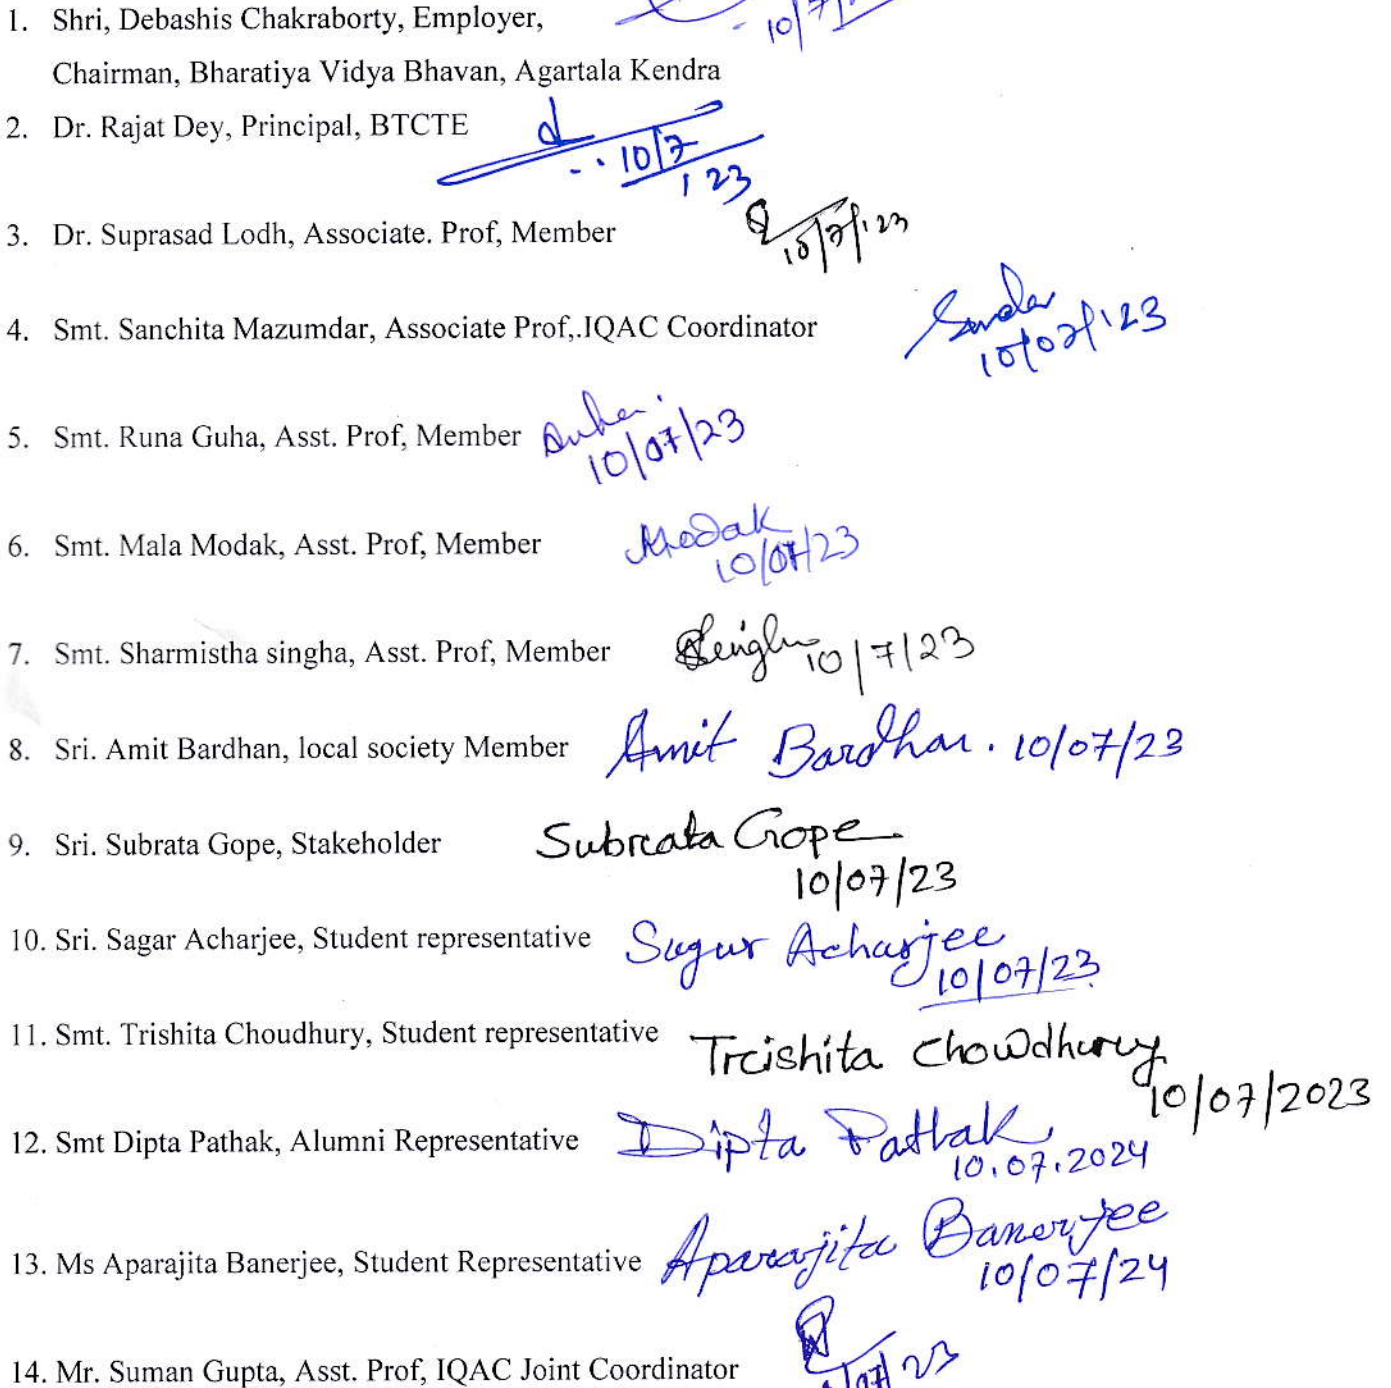 1. Shri, Debashis Chakraborty, Employer,
10/7/
Chairman, Bharatiya Vidya Bhavan, Agartala Kendra
2. Dr. Rajat Dey, Principal, BTCTE
10/7
/23
3. Dr. Suprasad Lodh, Associate. Prof, Member
10/7/'23
4. Smt. Sanchita Mazumdar, Associate Prof,.IQAC Coordinator
10/07/'23
5. Smt. Runa Guha, Asst. Prof, Member
10/07/23
6. Smt. Mala Modak, Asst. Prof, Member Modak
10/07/23
7. Smt. Sharmistha singha, Asst. Prof, Member 10/7/23
8. Sri. Amit Bardhan, local society Member Amit Bardhan. 10/07/23
9. Sri. Subrata Gope, Stakeholder Subrata Gope
10/07/23
10. Sri. Sagar Acharjee, Student representative Sagar Acharjee
10/07/23
11. Smt. Trishita Choudhury, Student representative Trishita Chowdhury
10/07/2023
12. Smt Dipta Pathak, Alumni Representative Dipta Pathak
10.07.2024
13. Ms Aparajita Banerjee, Student Representative Aparajita Banerjee
10/07/24
14. Mr. Suman Gupta, Asst. Prof, IQAC Joint Coordinator